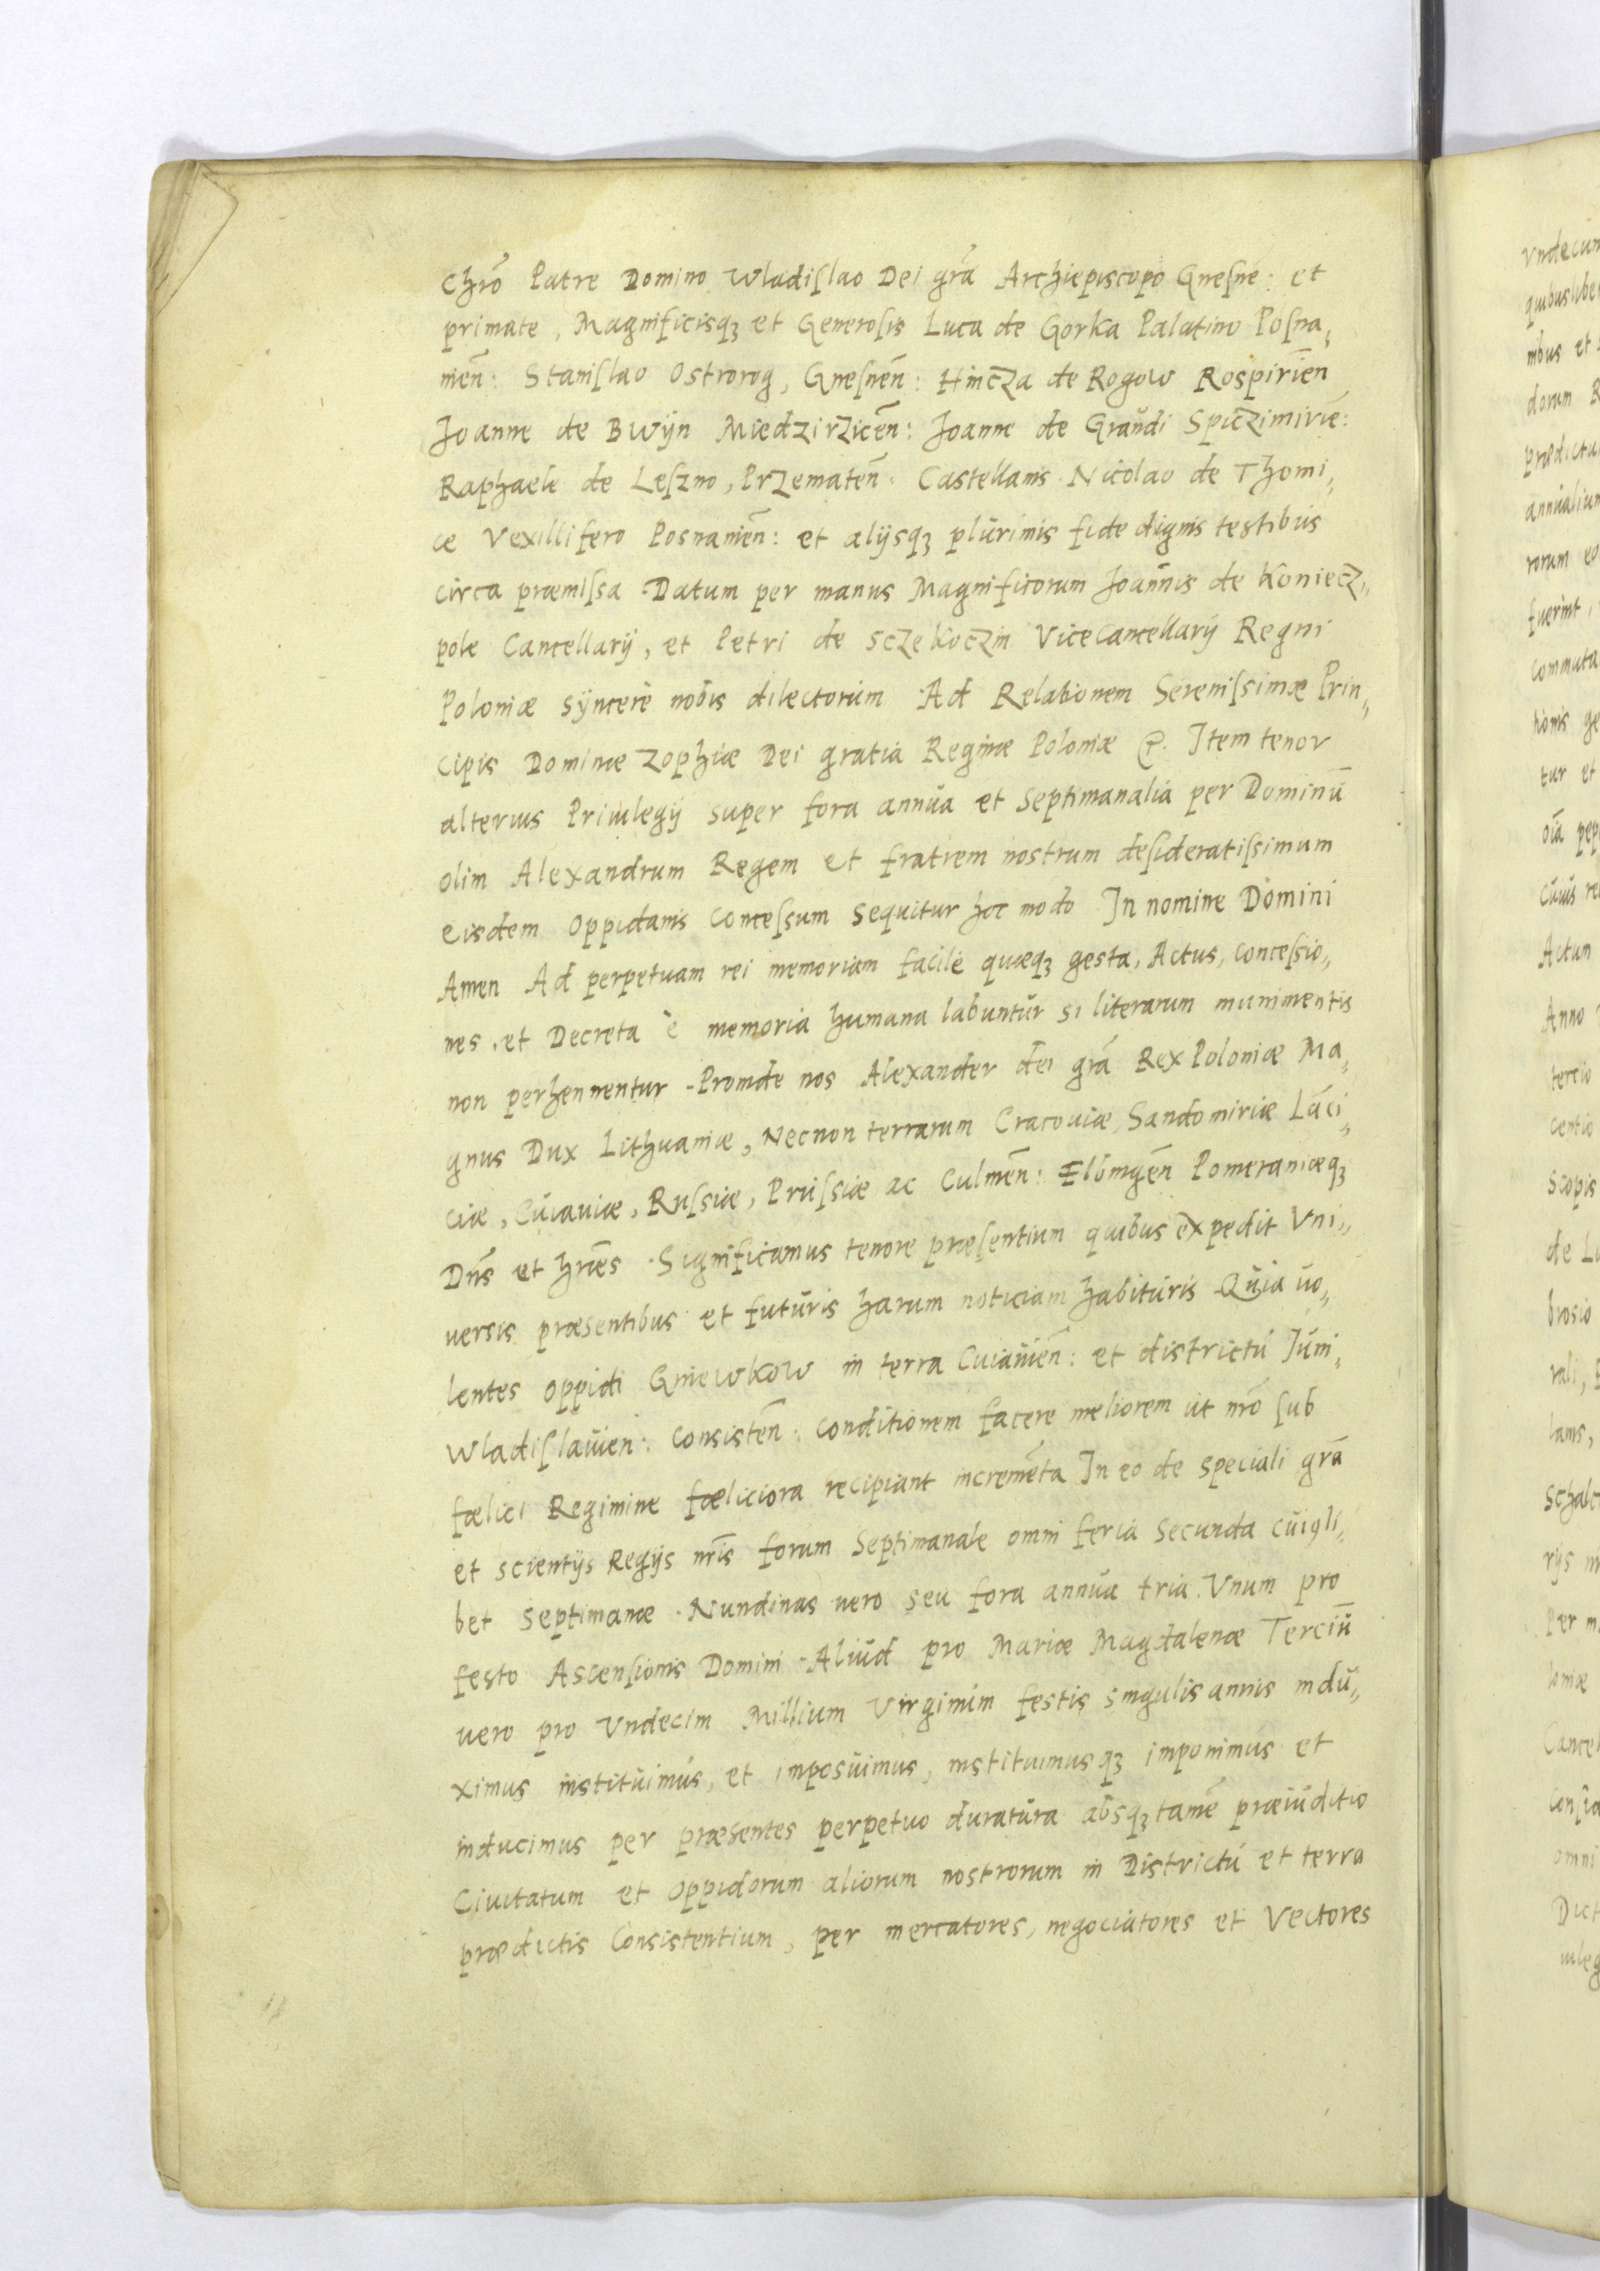 Chrō Patre Domino Wladiſlao Dei grā Archiepiscopo Gneſnē: et
primate, Magnificisqꝫ et Generoſis Luca de Gorka Palatino Poſna,
niēn: Staniſlao Ostrorog, Gneſnēn: Hincza de Rogow Rospiriēn
Joanne de Bwÿn Miedzirzicēn: Joanne de Grandi Spiczimiriē:
Raphaele de Leſzno, Przematēn: Castellanis. Nicolao de Thomi,
ce Vexillifero Posnaniēn: et alijsqꝫ plurimis fide dignis testibus
circa præmiſsa. Datum per manus Magnificorum Joannis de Koniecz,,
pole Cancellarij, et Petri de Sczekoczin ViceCancellarij Regni
Poloniæ syncerè nobis dilectorum. Ad Relationem Sereniſsimæ Prin,
cipis Dominæ Zophiæ Dei gratia Reginæ Poloniæ &. Item tenor
alterius Priuilegij super fora annua et Septimanalia per Dominū
olim Alexandrum Regem et fratrem nostrum deſideratiſsimum
eisdem oppidanis conceſsum sequitur hoc modo. In nomine Domini
Amen Ad perpetuam rei memoriam facilè quæqꝫ gesta, Actus, conceſsio,,
nes, et Decreta è memoria humana labuntur si literarum munimentis
non perhennentur. Proinde nos Alexander dei grā Rex Poloniæ Ma,
gnus Dux Lithuaniæ, Necnon terrarum Cracouiæ, Sandomiriæ Lāci,
ciæ, Cuiauiæ, Ruſsiæ, Pruſsiæ ac Culmēn: Elbingēn Pomeraniæqꝫ
Dn̄s et hr̄es. Significamus tenore præſentium quibus expedit Vni,,
uersis præsentibus et futuris harum noticiam habituris Quia uo,
lentes oppidi Gniewkow in terra Cuiauiēn: et districtu Juni,
Wladiſlauien: consistēn: conditionem facere meliorem ut nr̄o ſub
fœlici Regimine fœliciora recipiant incremēta In eo de speciali grā
et scientijs Regijs nr̄is forum Septimanale omni feria secunda cuiqli,
bet septimanæ. Nundinas uero seu fora annua tria. Vnum pro
festo Ascenſionis Domini. Aliud pro Mariæ Magdalenæ Terciū
uero pro Vndecim Millium Virginum festis singulis annis indu,,
ximus instituimus, et imposuimus, instituimusqꝫ imponimus et
inducimus per præsentes perpetuo duratura absqꝫ tamē præiuditio
Ciuitatum et oppidorum aliorum nostrorum in Districtu et terra
prædictis Consistentium, per mercatores, negociatores et Vectores